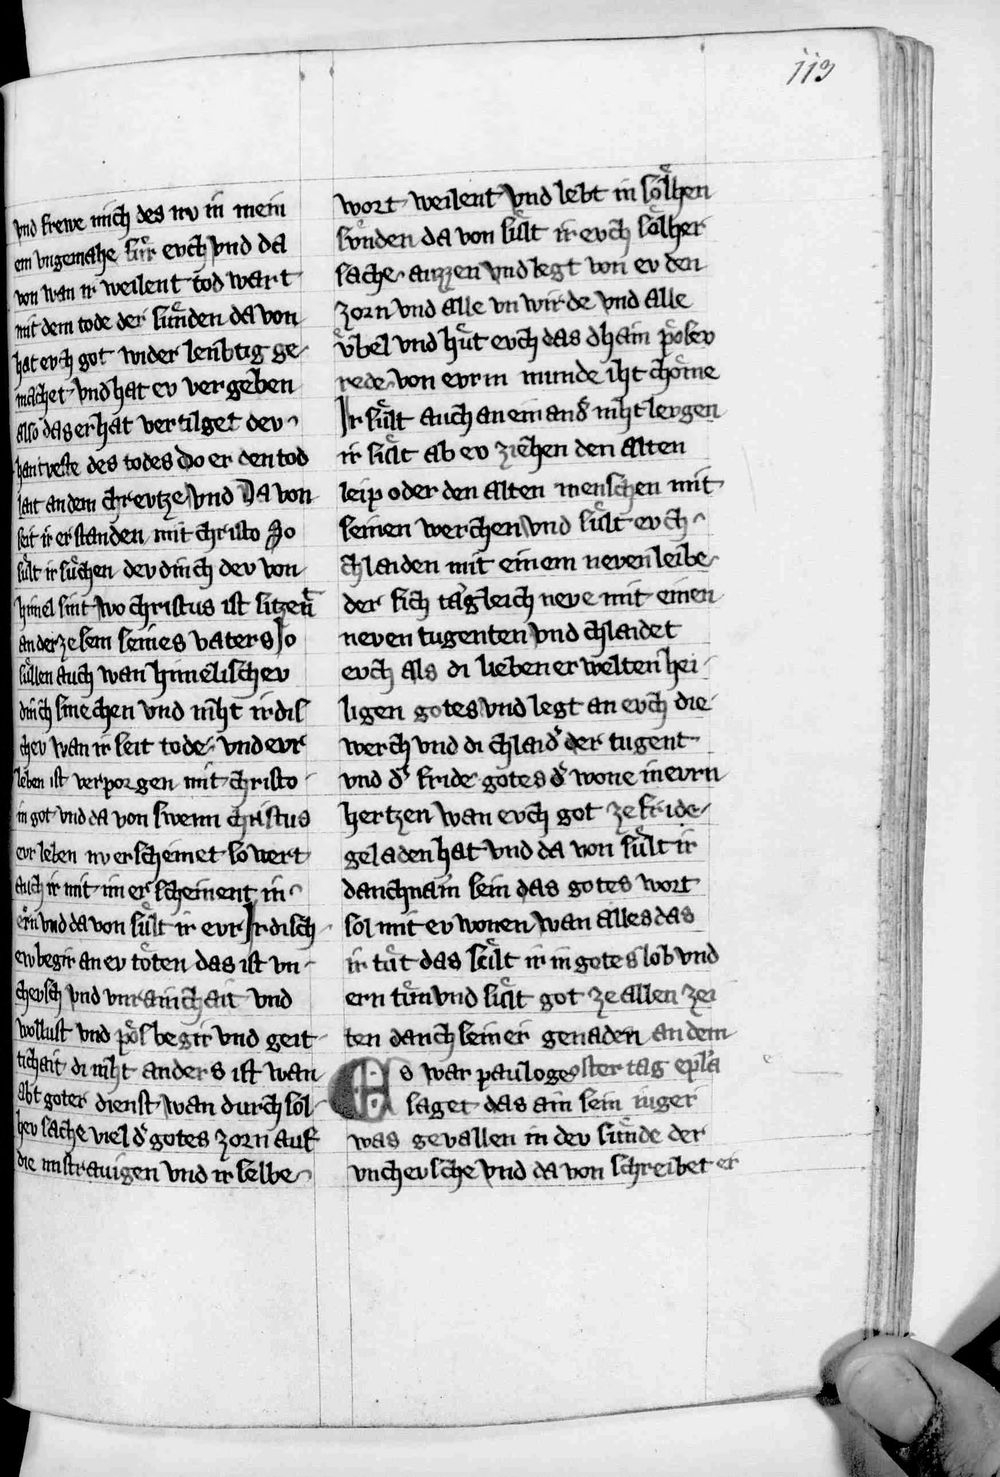 113
vnd frewe mich des nv in mein
em vngemahe fuͤr evch vnd da
von wan ir weilent tod wart
mit dem tode der suͤnden da von
hat evch got wider lenbtig ge-
machet vnd hat ev vergeben
also das er hat vertilget dev
hantveste des todes Do er den tod
lait an dem chrevtze vnd Da von
seit ir erstanden mit christo So
suͤlt ir suͤchen dev dinch dev von
himel sint wo christus ist sitzen̄
an der zesem seines vaters So
suͤllen auch wan himelischev
dinch smechen vnd niht irdis
chev wan ir seit tode vnd evr
leben ist verporgen mit christo
in got vnd da von swenn christus
evr leben nv erscheinet so wert
auch ir mit im erscheinent in
ern vnd da von suͤlt ir evr Irdisch
ew begir an ev toͤten das ist vn-
chevsch vnd vnrainichait vnd
wollust vnd poͤs begir vnd geit
tichait di niht anders ist wan
abtgoter dienst wan durch sol-
hev sache viel d' gotes zorn auf
die mistrauigen vnd ir selbe
wort weilent vnd lebt in soͤlhen
suͤnden da von suͤlt ir evch soͤlher
sache auzzen vnd legt von ev den
zorn vnd alle vnwirde vnd alle
vͤbel vnd huͤt evch das dhain poͤsev
rede von evrm munde iht choͤme
Ir suͤlt auch an ein and' niht leygen
ir suͤlt ab ev ziehen den alten
leip oder den alten menschen mit
seinen werchen vnd suͤlt evch
chlaiden mit einem neven leibe
der sich taͤgleich neve mit einen
neven tugenten vnd chlaidet
evch als di lieben erwelten hei-
ligen gotes vnd legt an evch die
werch vnd di chlaid' der tugent
vnd d' fride gotes d' wone in evrn
hertzen wan evch got ze fride
geladen hat vnd da von suͤlt ir
danchnaim sein das gotes wort
sol mit ev wonen wan alles das
ir tuͤt das suͤlt ir in gotes lob vnd
ern tuͤn vnd suͤlt got ze allen zei
ten danch seiner genaden an dem
Es war paulo geoster tag epl'a
saget das ain sein iuger
was gevallen in dev suͤnde der
vnchevsche vnd da von schreibet er